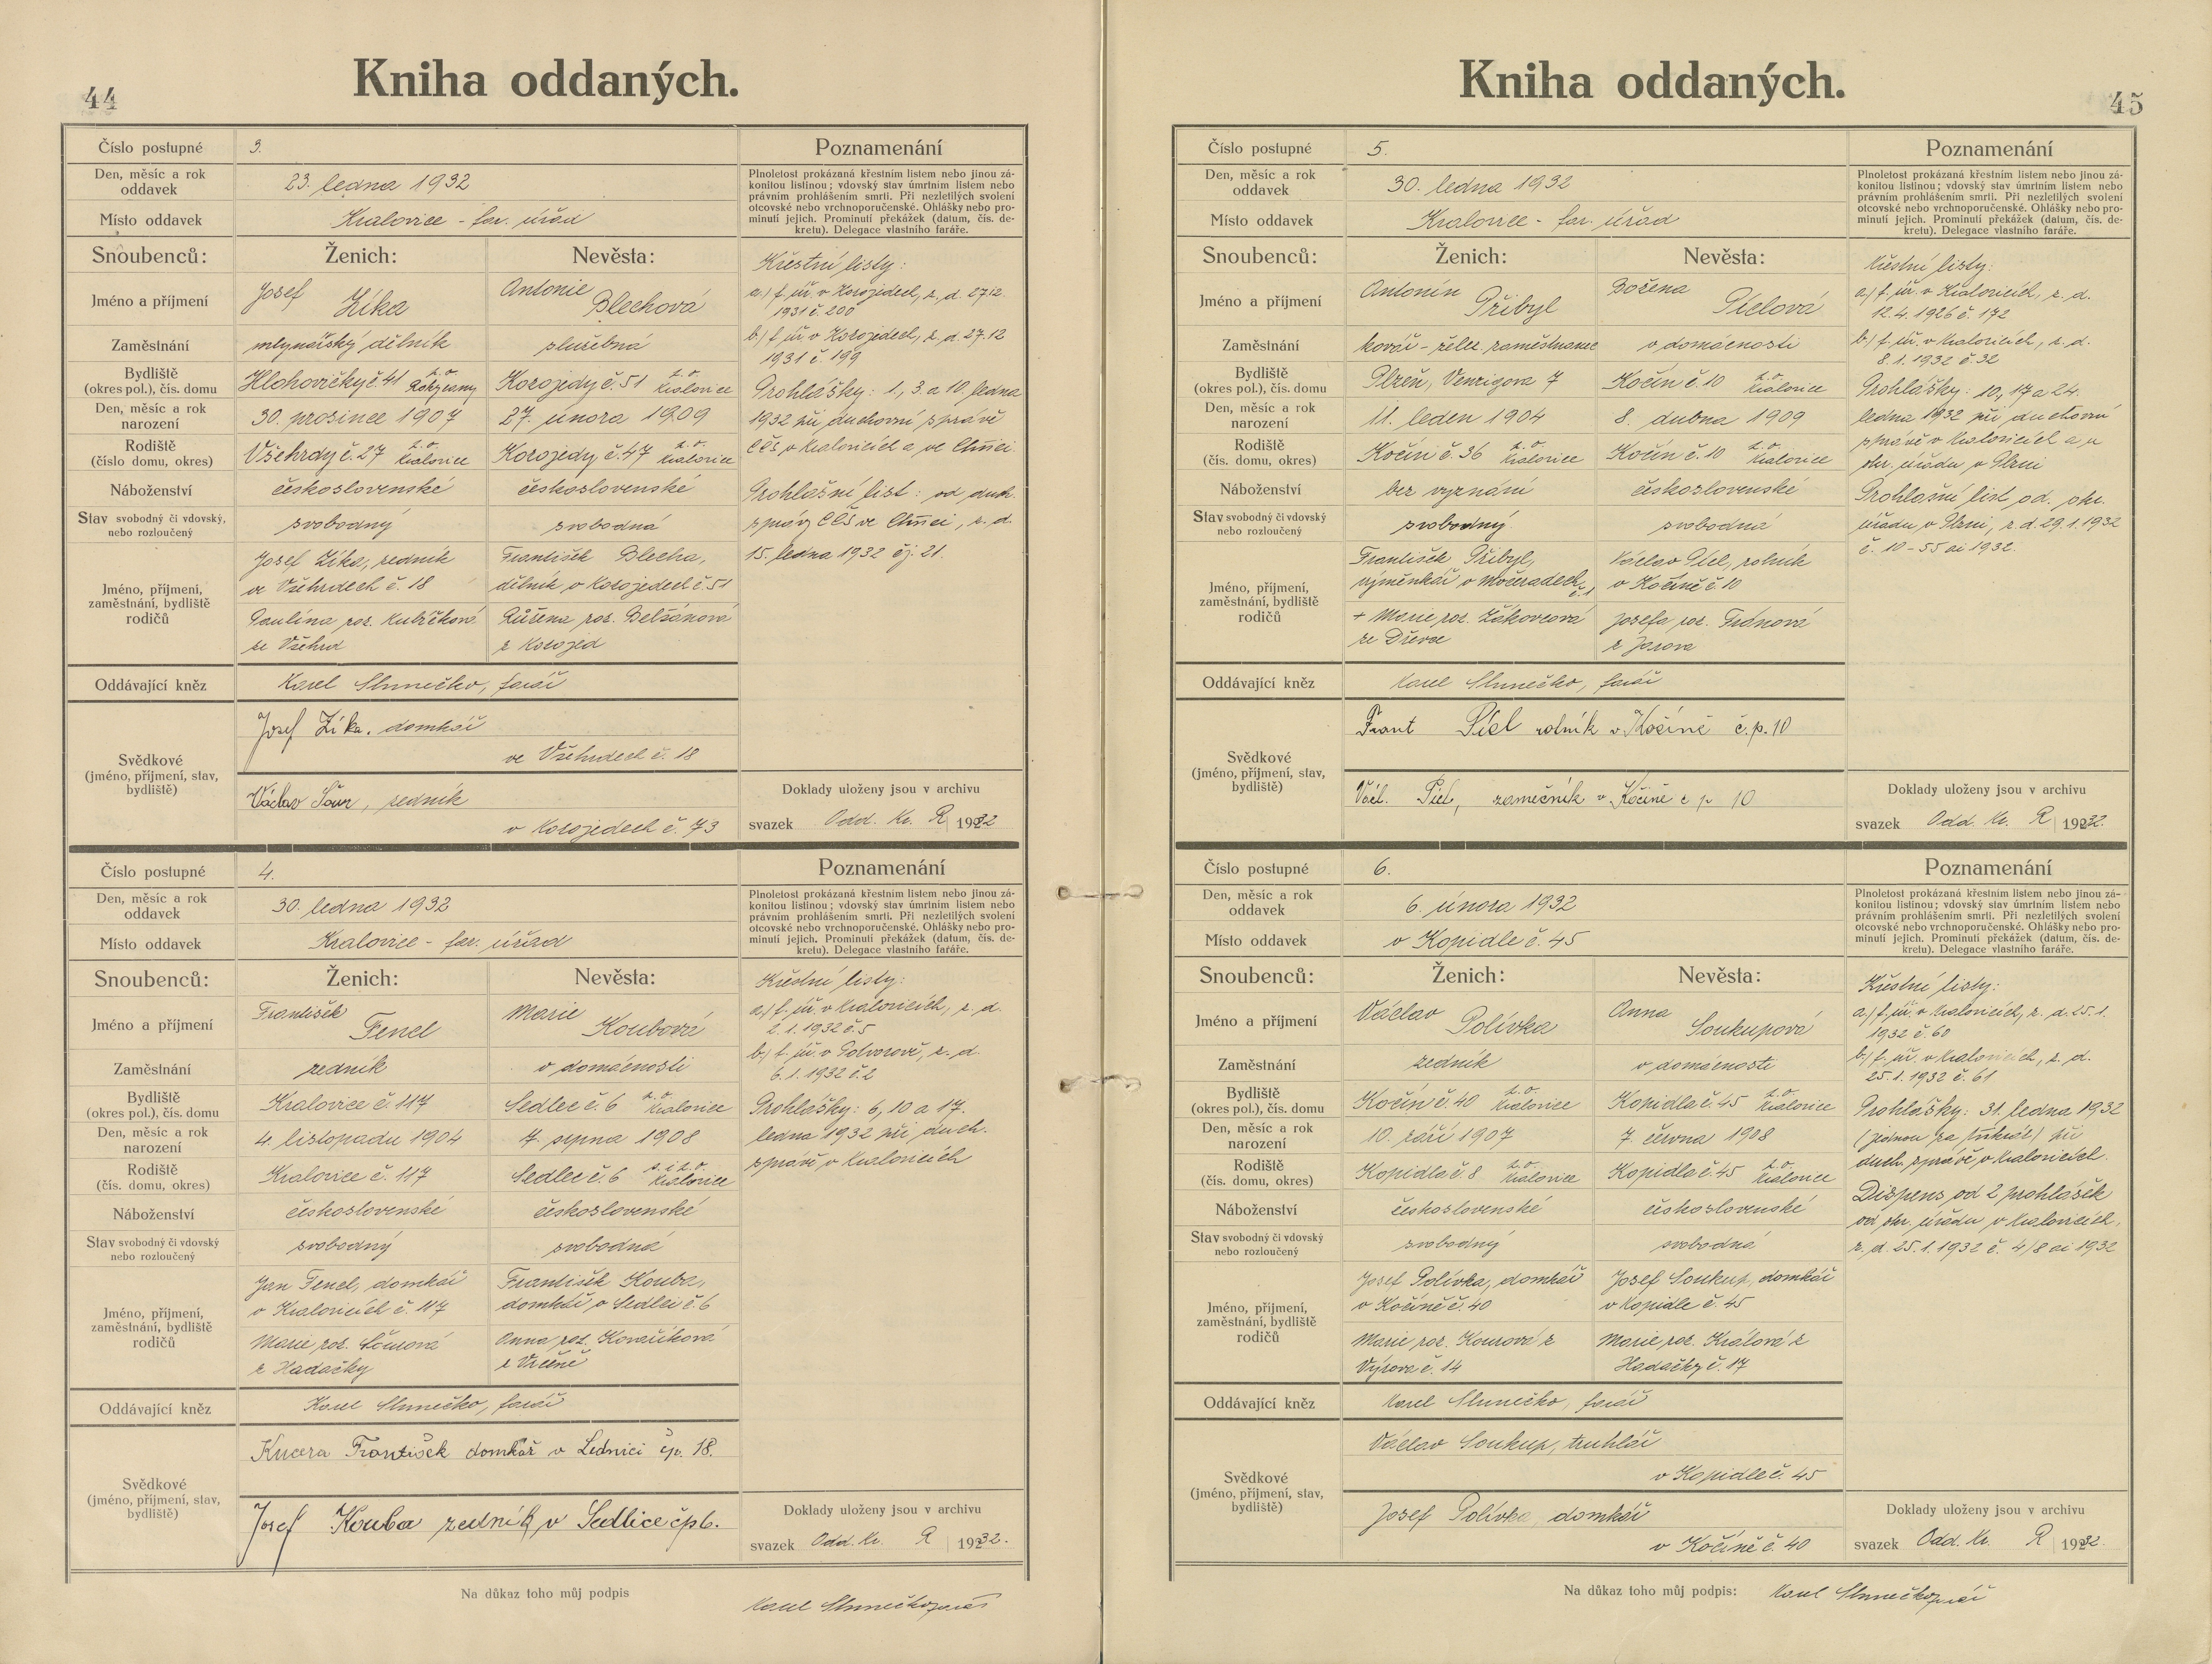 44
Kniha oddaných.
Číslo postupné 3.
Den, měsíc a rok oddavek 23. ledna 1932
Místo oddavek Kralovice - far. úřad
Poznamenání
Plnoletost prokázaná křestním listem nebo jinou zá-
konitou listinou; vdovský stav úmrtním listem nebo
právním prohlášením smrti. Při nezletilých svolení
otcovské nebo vrchnoporučenské. Ohlášky nebo pro-
minutí jejich. Prominutí překážek (datum, čís. de-
kretu). Delegace vlastního faráře.
Snoubenců: Ženich: Nevěsta:
Jméno a příjmení Josef Zíka Antonie Blechová
Zaměstnání mlynářský dělník služebná
Bydliště (okres pol.), čís. domu Hlohovičky č. 41 z. o. Rokycany Korojedy č. 51 z. o. Kralovice
Den, měsíc a rok narození 30. prosince 1907 27. února 1909
Rodiště (číslo domu, okres) Všehrdy č. 27 z. o. Kralovice Korojedy č. 47 z. o. Kralovice
Náboženství československé československé
Stav svobodný či vdovský, nebo rozloučený svobodný svobodná
Jméno, příjmení, zaměstnání, bydliště rodičů
Josef Zíka, zedník
ve Všehrdech č. 18
František Blecha,
dělník v Korojedech č. 51
Paulína roz. Kubíčková
ze Všehrd
Růžena roz. Belšánová
z Korojed
Oddávající kněz Karel Slunečko, farář
Svědkové (jméno, příjmení, stav, bydliště)
Josef Zíka, domkář
ve Všehrdech č. 18
Václav Šour, zedník
v Korojedech č. 73
Křestní listy:
a) f. úř. v Korojedech, z. d. 27.12.
1931 č. 200
b) f. úř. v Korojedech, z. d. 27.12
1931 č. 199
Prohlášky: 1., 3. a 10. ledna
1932 při duchovní správě
CČS v Kralovicích a ve Chříci
Prohlašní list: od duch.
správy CČS ve Chříci, z. d.
15. ledna 1932 čj. 21.
Doklady uloženy jsou v archivu
svazek Odd. Kr. R 1932
Číslo postupné 4.
Den, měsíc a rok oddavek 30. ledna 1932
Místo oddavek Kralovice - far. úřad
Poznamenání
Plnoletost prokázaná křestním listem nebo jinou zá-
konitou listinou; vdovský stav úmrtním listem nebo
právním prohlášením smrti. Při nezletilých svolení
otcovské nebo vrchnoporučenské. Ohlášky nebo pro-
minutí jejich. Prominutí překážek (datum, čís. de-
kretu). Delegace vlastního faráře.
Snoubenců: Ženich: Nevěsta:
Jméno a příjmení František Fenel Marie Koubová
Zaměstnání zedník v domácnosti
Bydliště (okres pol.), čís. domu Kralovice č. 117 Sedlec č. 6 z. o. Kralovice
Den, měsíc a rok narození 4. listopadu 1904 7. srpna 1908
Rodiště (čís. domu, okres) Kralovice č. 117 Sedlec č. 6 s. i z. o. Kralovice
Náboženství československé československé
Stav svobodný či vdovský nebo rozloučený svobodný svobodná
Jméno, příjmení, zaměstnání, bydliště rodičů
Jan Fenel, domkář
v Kralovicích č. 117
František Kouba,
domkář v Sedlci č. 6
Marie roz.
z Hadačky
Anna roz. Kovaříková
z
Oddávající kněz Karel Slunečko, farář
Svědkové (jméno, příjmení, stav, bydliště)
Kucera František domkář v Lednici čp. 18.
Josef Kouba zedník v Sedlice čp 6.
Křestní listy:
a) f. úř. v Kralovicích, z. d.
2.1.1932 č. 5
b) f. úř. v Potvorově, z. d.
6.1.1932 č. 2
Prohlášky: 6, 10 a 17.
ledna 1932 při duch.
správě v Kralovicích
Doklady uloženy jsou v archivu
svazek Odd. Kr. R 1932.
Na důkaz toho můj podpis Karel Slunečko farář
45
Kniha oddaných.
Číslo postupné 5.
Den, měsíc a rok oddavek 30. ledna 1932
Místo oddavek Kralovice - far. úřad
Poznamenání
Plnoletost prokázaná křestním listem nebo jinou zá-
konitou listinou; vdovský stav úmrtním listem nebo
právním prohlášením smrti. Při nezletilých svolení
otcovské nebo vrchnoporučenské. Ohlášky nebo pro-
minutí jejich. Prominutí překážek (datum, čís. de-
kretu). Delegace vlastního faráře.
Snoubenců: Ženich: Nevěsta:
Jméno a příjmení Antonín Přibyl Božena Píclová
Zaměstnání kovář - želez. zaměstnanec v domácnosti
Bydliště (okres pol.), čís. domu Plzeň, Venzigova 7 Kočín č. 10 z. o. Kralovice
Den, měsíc a rok narození 11. leden 1904 8. dubna 1909
Rodiště (čís. domu, okres) Kočín č. 36 z. o. Kralovice Kočín č. 10 z. o. Kralovice
Náboženství bez vyznání československé
Stav svobodný či vdovský nebo rozloučený svobodný svobodná
Jméno, příjmení, zaměstnání, bydliště rodičů
František Přibyl,
výměnkář v Močeradech č. 1
Václav Pícl, rolník
v Kočíně č. 10
+ Marie roz. Žákovcová
ze Dřevce
Josefa roz. Tránová
z Jarova
Oddávající kněz Karel Slunečko, farář
Svědkové (jméno, příjmení, stav, bydliště)
Frant Pícl rolník v Kočíně č. p. 10
Václ. Pícl, zamečník v Kočíně č p 10
Křestní listy:
a) f. úř. v Kralovicích, z. d.
12.4.1926 č. 172
b) f. úř. v Kralovicích, z. d.
8.1.1932 č. 32
Prohlášky: 10., 17 a 24.
ledna 1932 při duchovní
správě v Kralovicích a u
okr. úřadu v Plzni
Prohlašní list od. okr.
úřadu v Plzni, z d. 29.1.1932
č. 10-55 ai 1932.
Doklady uloženy jsou v archivu
svazek Odd. Kr. R 1932.
Číslo postupné 6.
Den, měsíc a rok oddavek 6. února 1932
Místo oddavek v Kopidle č. 45
Poznamenání
Plnoletost prokázaná křestním listem nebo jinou zá-
konitou listinou; vdovský stav úmrtním listem nebo
právním prohlášením smrti. Při nezletilých svolení
otcovské nebo vrchnoporučenské. Ohlášky nebo pro-
minutí jejich. Prominutí překážek (datum, čís. de-
kretu). Delegace vlastního faráře.
Snoubenců: Ženich: Nevěsta:
Jméno a příjmení Václav Polívka Anna Soukupová
Zaměstnání zedník v domácnosti
Bydliště (okres pol.), čís. domu Kočín č. 40 z. o. Kralovice Kopidla č. 45 z. o. Kralovice
Den, měsíc a rok narození 10. září 1907 7. června 1908
Rodiště (čís. domu, okres) Kopidla č. 8 z. o. Kralovice Kopidla č. 45 z. o. Kralovice
Náboženství československé československé
Stav svobodný či vdovský nebo rozloučený svobodný svobodná
Jméno, příjmení, zaměstnání, bydliště rodičů
Josef Polívka, domkář
v Kočíně č. 40
Josef Soukup, domkář
v Kopidle č. 45
Marie roz. Kourová z
Výrova č. 14
Marie roz. Králová z
Hadačky č. 17
Oddávající kněz Karel Slunečko, farář
Svědkové (jméno, příjmení, stav, bydliště)
Václav Soukup, truhlář
v Kopidle č. 45
Josef Polívka, domkář
v Kočíně č. 40
Křestní listy:
a) f. úř. v Kralovicích, z. d. 25.1.
1932 č. 60
b) f. úř. v Kralovicích, z. d.
25.1.1932 č. 61
Prohlášky: 31. ledna 1932
(jednou za třikrát) při
duch. správě v Kralovicích.
Dispens od 2 prohlášek
od okr. úřadu v Kralovicích,
z. d. 25.1.1932 č. 4/8 ai 1932
Doklady uloženy jsou v archivu
svazek Odd. Kr. R 1932.
Na důkaz toho můj podpis: Karel Slunečko farář